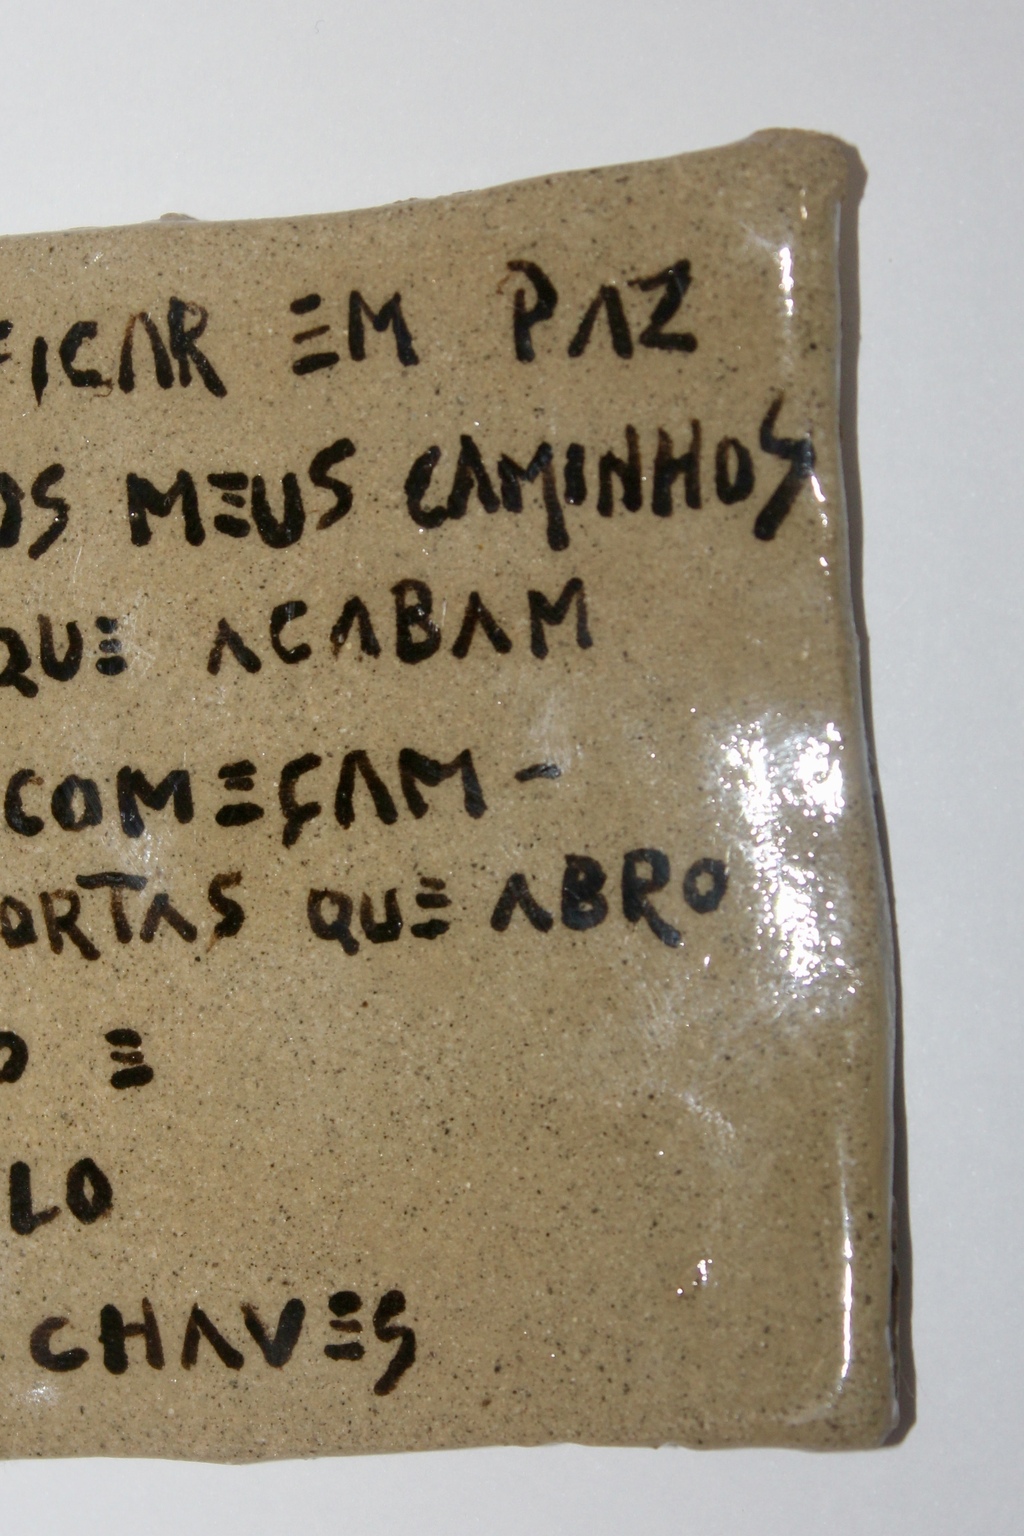 FICAR EM PAZ
OS MEUS CAMINHOS
QUE ACABAM
COMEÇAM -
ORTAS QUE ABRO
O E
LO
CHAVES